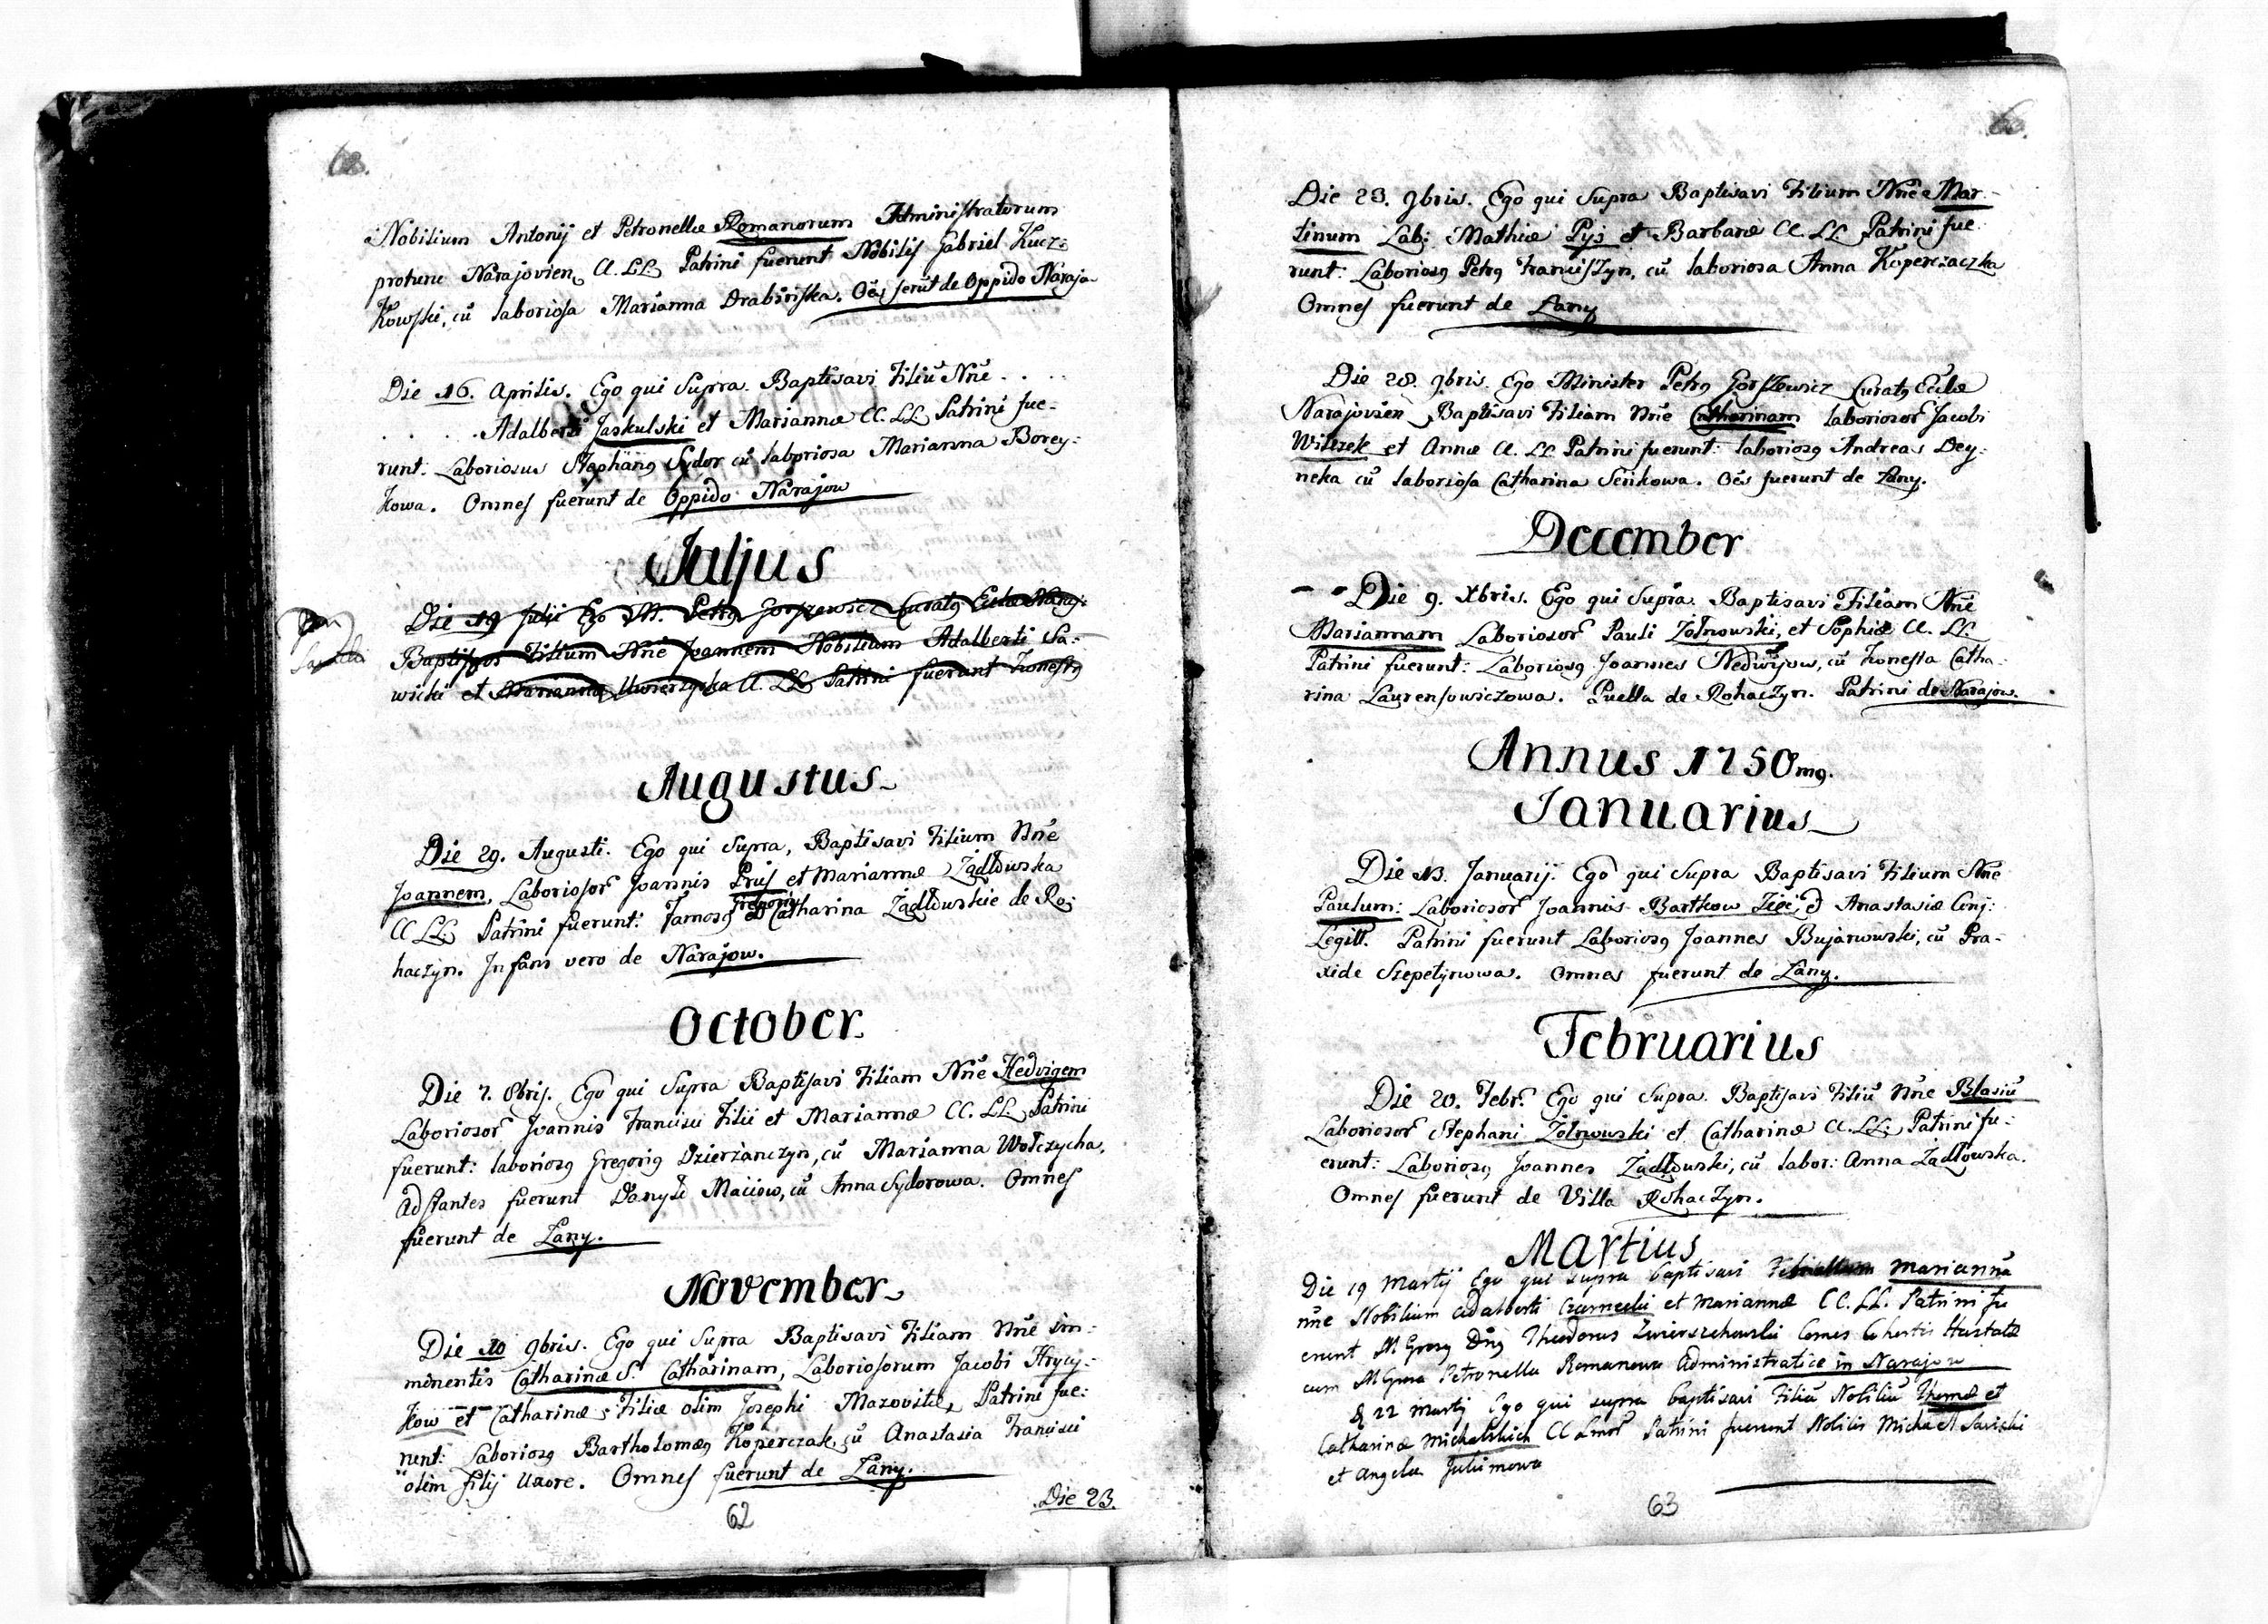 62.
Nobilium Antonij et Petronellæ Romanorum Administratorum
protunc Narajovien, CC. LL. Patrini fuerunt Nobilis Gabriel Kucz:
kowski, cũ laboriosa Marianna Drabińska. Oẽs ferũt de Oppido Narajo
Die 16. Aprilis. Ego qui Supra. Baptisavi Filiũ Nñe . . . .
. . . . . Adalberti Jaskulski et Mariannæ CC. LL. Patrini fue-
runt: Laboriosus Stephang Sydor cũ laboriosa Marianna Borey:
kowa. Omnes fuerunt de Oppido Narajow
Julius
Die 19 Julji Ego M. Petrg Gorszewicz Curatg Ecclæ Naraj:
Baptisavi Filium Nñe Joannem Nobilium Adalberti Sa:
wicki et Marianna CC. LL. Patrini fuerunt Honestg
Augustus
Die 29. Augusti. Ego qui Supra, Baptisavi Filium Nñe
Joannem, Laboriosor Joannis Prus et Mariannæ Żądłowska
CC LL. Patrini fuerunt: Famosg Gregorig et Catharina Żądłowskie de Ro:
haczyn. Infans vero de Narajow.
October
Die 7. 8bris. Ego qui Supra Baptisavi Filiam Nñe Hedvigem
Laboriosor Joannis Francisci Filii et Mariannæ CC. LL. Patrini
fuerunt: laboriosg Gregorig Dzierżanczyn, cũ Marianna Wołczycha,
Adstantes fuerunt Danyło Maciow, cũ Anna Sydorowa. Omnes
fuerunt de Łany.
November
Die 10 9bris. Ego qui Supra Baptisavi Filiam Nñe im-
minentis Catharinæ S. Catharinam, Laboriosorum Jacobi Hrycy:
kow et Catharinæ, Filiæ olim Josephi Mazovitæ, Patrini fue:
runt: Laboriosg Bartholomæg Koperczak, cũ Anastasia Francisci
olim filij Uxore. Omnes fuerunt de Łany.
Die 23.
62
Die 23. 9bris. Ego qui Supra Baptisavi Filium Nñe Mar-
tinum Lab: Mathiæ Pyś et Barbaræ CC. LL. Patrini fue
runt: Laboriosg Petrg Franciszyn, cũ laboriosa Anna Koperczaczka
Omnes fuerunt de Łany
Die 28. 9bris. Ego Minister Petrg Gorszewicz Curatg Eccłæ
Narajovien, Baptisavi Filiam Nñe Catharinam laboriosor Jacobi
Wilczek et Annæ CC. LL. Patrini fuerunt: laboriosg Andreas Dey:
neka cũ laboriosa Catharina Senkowa. Oẽs fuerunt de Łany.
December
Die 9. Xbris. Ego qui Supra. Baptisavi Filiam Nñe
Mariannam Laboriosor Pauli Żołnowski, et Sophiæ CC. LL.
Patrini fuerunt: Laboriosg Joannes Nedwyjow, cũ Honesta Catha-
rina Laurensowiczowa. Puella de Rohaczyn. Patrini de Narajow.
Annus 1750mg.
Januarius
Die 13. Januarij. Ego qui Supra Baptisavi Filium Nñe
Paulum: Laboriosor Joannis Bartkow Zięc, & Anastasiæ Conj:
Legitt. Patrini fuerunt Laboriosg Joannes Bujanowski, cũ Pra-
xide Szepetynowa. Omnes fuerunt de Łany.
Februarius
Die 20. Febr. Ego qui Supra. Baptisavi Filiũ Nñe Blasiũ
Laboriosor Stephani Żołnowski et Catharinæ CC. LL. Patrini fu:
erunt: Laboriosg Joannes Żądłowski, cũ labor: Anna Żądłowska.
Omnes fuerunt de Villa Rohaczyn.
Martius
Die 19 Martij Ego qui supra baptisavi Mariannã
nñe Nobilium Adalberti Czarnecki et Mariannæ CC. LL. Patrini fu
erunt MGrosg Dng Theodorus Zwierszchowski Comes Cohortis Hastatæ
cum MGnra Petronella Romanowa Administratice in Narajow
& 22 Martij Ego qui supra baptisavi Filiũ Nobiliũ Thomæ et
Catharinæ Michalskich CC Lmor Patrini fuerunt Nobilis Michael Sawicki
et Angela
63